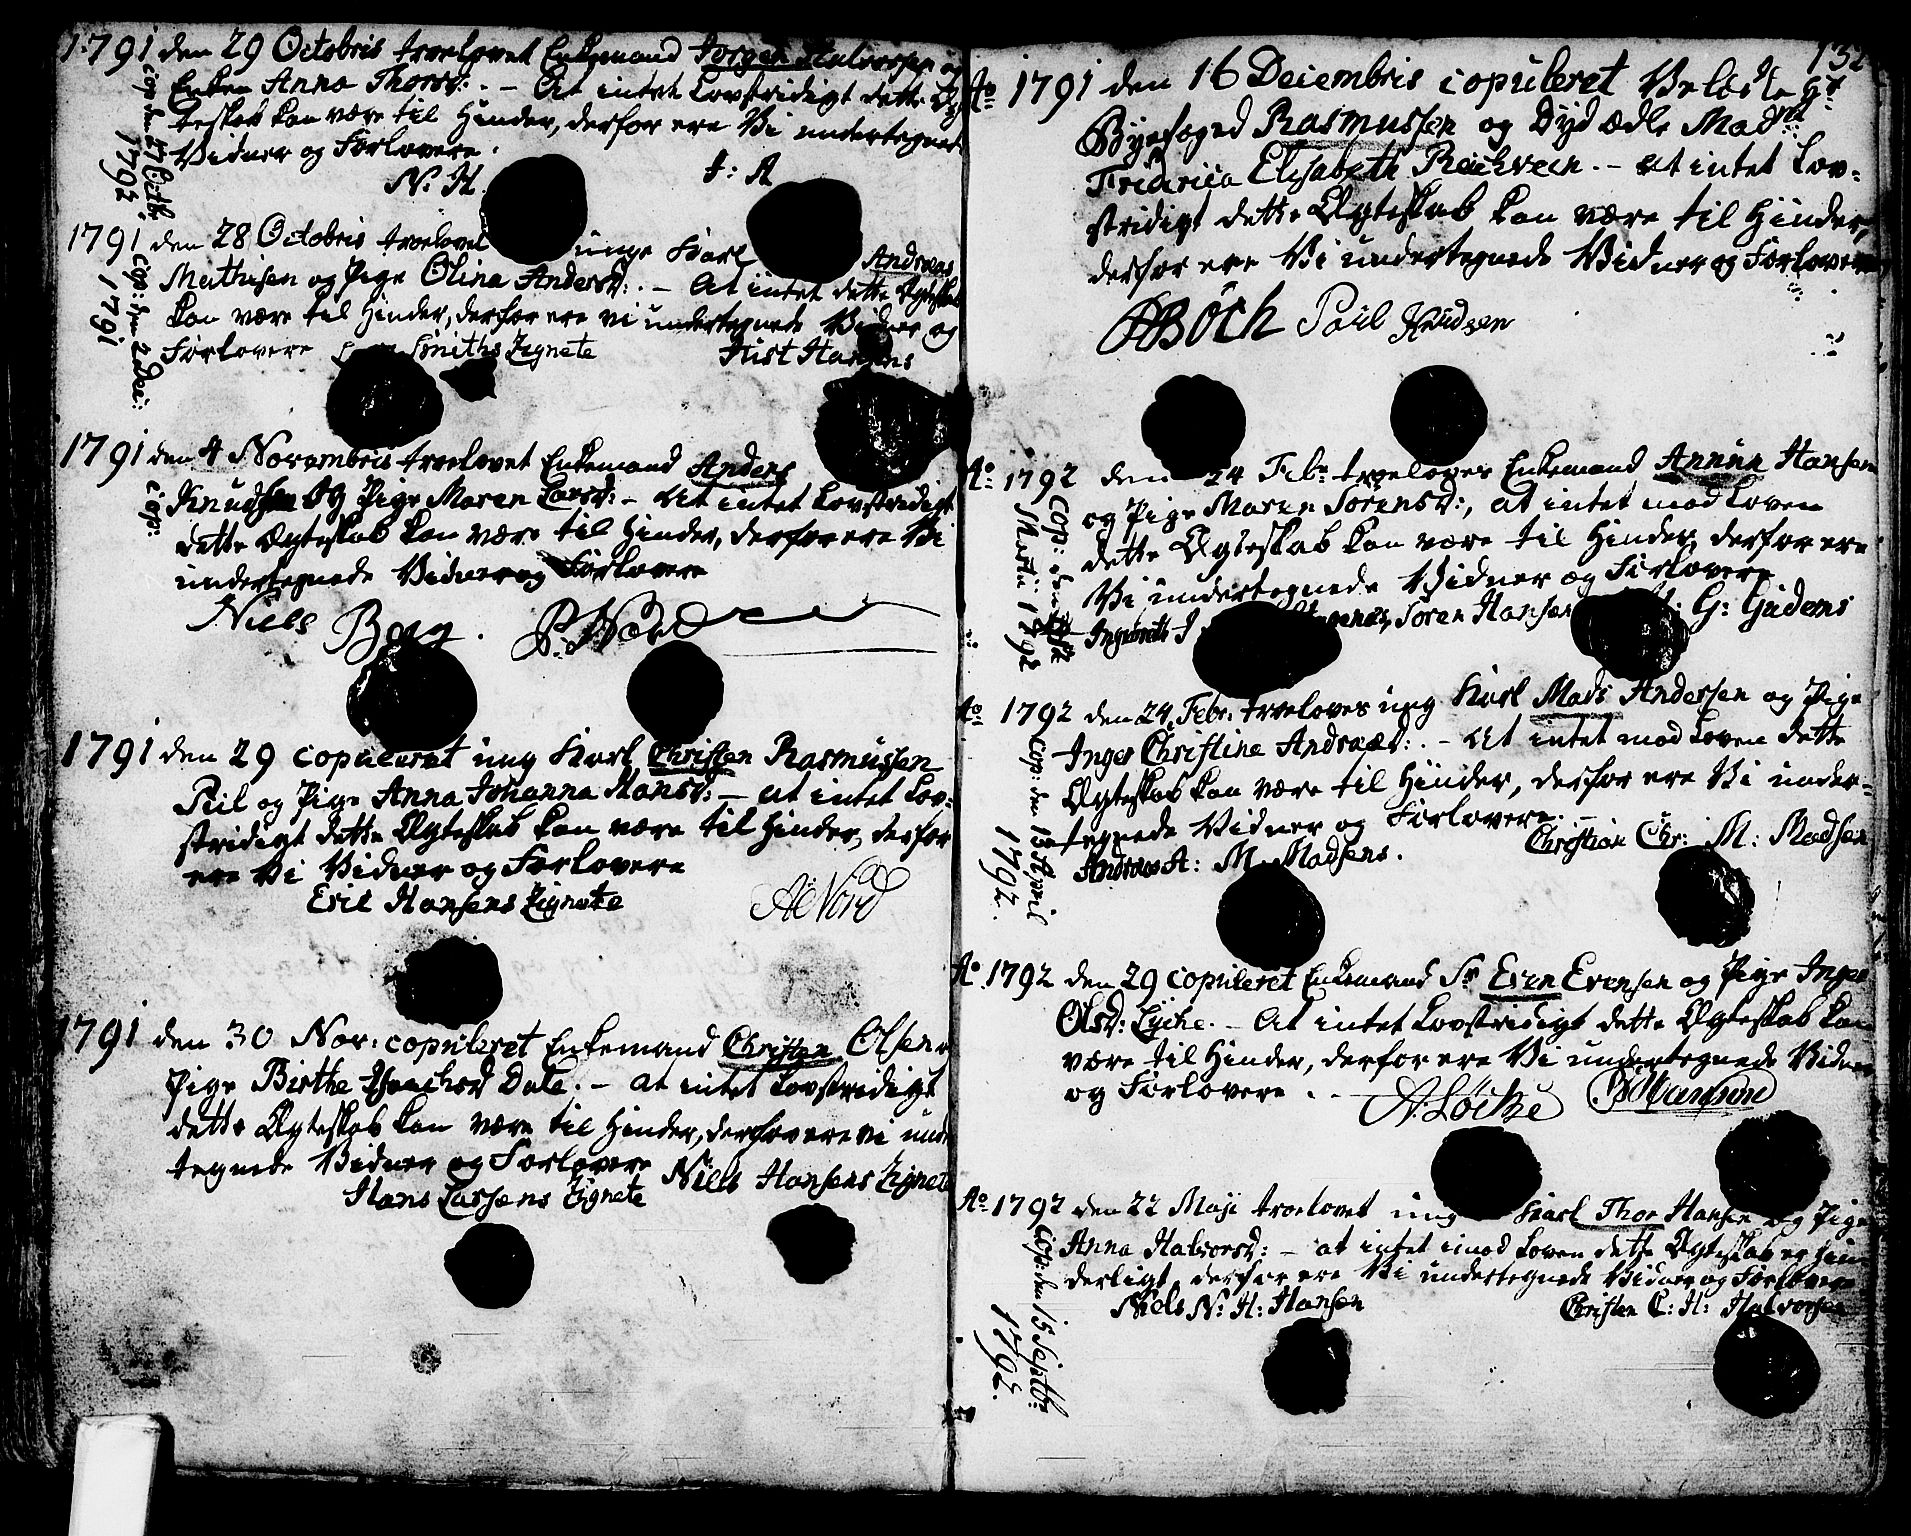 1791 den 29 Octobris troelovet Enkemand Jørgen Halvorsen og
Enken Anna Thorsd: . – At intet Lovstridigt dette Æg-
teskab kan være til Hinder, derfor ere Vi undertegnede
Vidner og Forlovere .
N: H. J: A
Cop: den 27 Octbr:
1792
1791 den 28 Octobris troelovet unge Karl Andreas
Mathisen og Pige Olina Andersd: . – At intet dette Ægteskab
kan være til Hinder, derfor ere vi undertegnede Vidner og
Forlovere Smiths Zignete Hist Hansens
Cop: den 2 Dec:
1791
1791 den 4 Novembris troelovet Enkemand Anders
Knudsen og Pige Maren Larsd: – At intet Lovstridigt
dette Ægteskab kan være til Hinder, derfor ere Vi
undertegnede Vidner og Forlovere
Niels Berg. P. Nord
Cop:
1791 den 29 copuleret ung Karl Christen Rasmussen
Piil og Pige Anna Johanna Hansd: – at intet Lov-
stridigt dette Ægteskab kan være til Hinder, derfor
ere Vi Vidner og Forlovere
Eric Hansens Zignete A Nord
1791 den 30 Nov: copuleret Enkemand Christen Olsen og
Pige Birthe Dale. – at intet Lovstridigt
dette Ægteskab kan være til Hinder, derfor ere vi under
tegnede Vidner og Forlovere Niels Hansens Zignete
Hans Larsens Zignete
132
Ao 1791 den 16 Deicembris copuleret Velædle Hr
Byefoged Rasmussen og Dyd ædle Madlle
Friderica Elisabeth Reichwein . – at intet Lov-
stridigt dette Ægteskab kan være til Hinder,
derfor ere Vi undertegnede Vidner og Forlovere
Böch Poul Knudsen
Ao 1792 den 24 Febr: troeloves Enkemand Annun Hansen
og Pige Maren Sörensd:, at intet mod Loven
dette Ægteskab kan være til Hinder, derfor ere
Vi undertegnede Vidner og Forlovere
Ingebrett J Sören Hansen G: Gudems
Cop: den
Martii 1792
Ao 1792 den 24 Febr: troeloves ung Karl Mads Andersen og Pige
Inger Christine Andreæd: . – At intet mod Loven dette
Ægteskab kan være til Hinder, derfor ere Vi under-
tegnede Vidner og Forlovere. –
Andreas A: M. Madsens. Christian Chr: M: Madsen
Cop: den 13 April
1792.
Ao 1792 den 29 copuleret Enkemand Sr Even Evensen og Pige Inger
Olsd: Lyche. – At intet Lovstridigt dette Ægteskab kan
være til Hinder, derfor ere Vi undertegnede Vidner
og Forlovere . . A. Löcke Hansen
Ao 1792 den 22 Maji troelovet ung Karl Thor Hansen og Pige
Anna Halvorsd: – at intet imod Loven dette Ægteskab er hin
derligt, derfor ere Vi undertegnede Vidner og Forlovere
Niels N: H: Hansen Christen C: H: Halvorsen
Cop: den 15 Septbr:
1792.